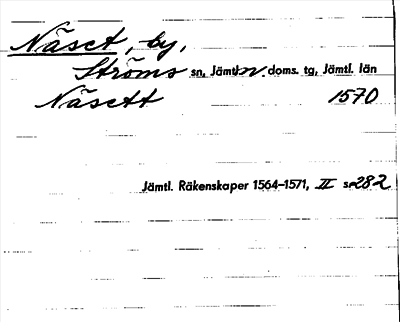 Näset, by,
Ströms sn, Jämtl. n. doms. tg, Jämtl. län
Näsett 1570
Jämtl. Räkenskaper 1564–1571, II s. 282